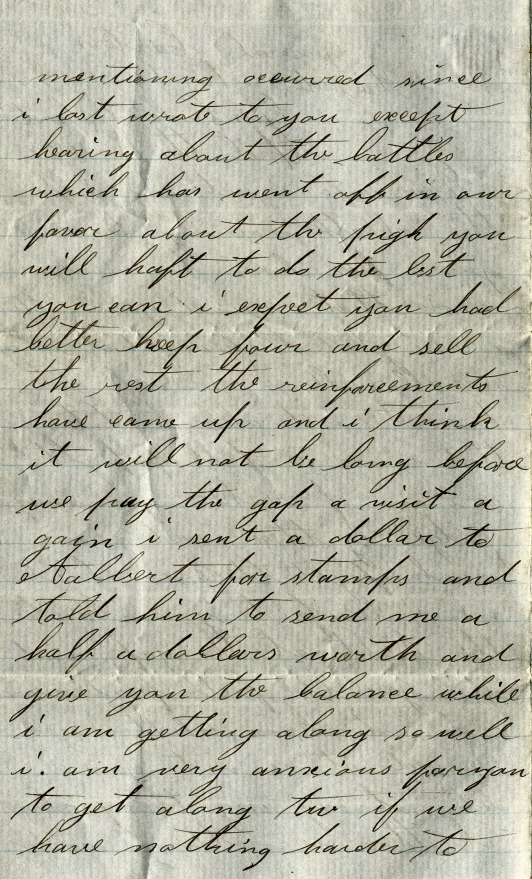 mentioning occurred since
i last wrote to you except
hearing about the battles
which has went off in our
favor about the pigh you
will haft to do the best
you can i expect you had
better keep four and sell
the rest the reinforcements
have came up and i think
it will not be long before
we pay the gap a visit a
gain i sent a dollar to
Aalbert for stamps and
told him to send me a
half a dollars worth and
give you the balance while
i am getting along so well
i. am very anxious for you
to get along tw if we
have nothing harder to